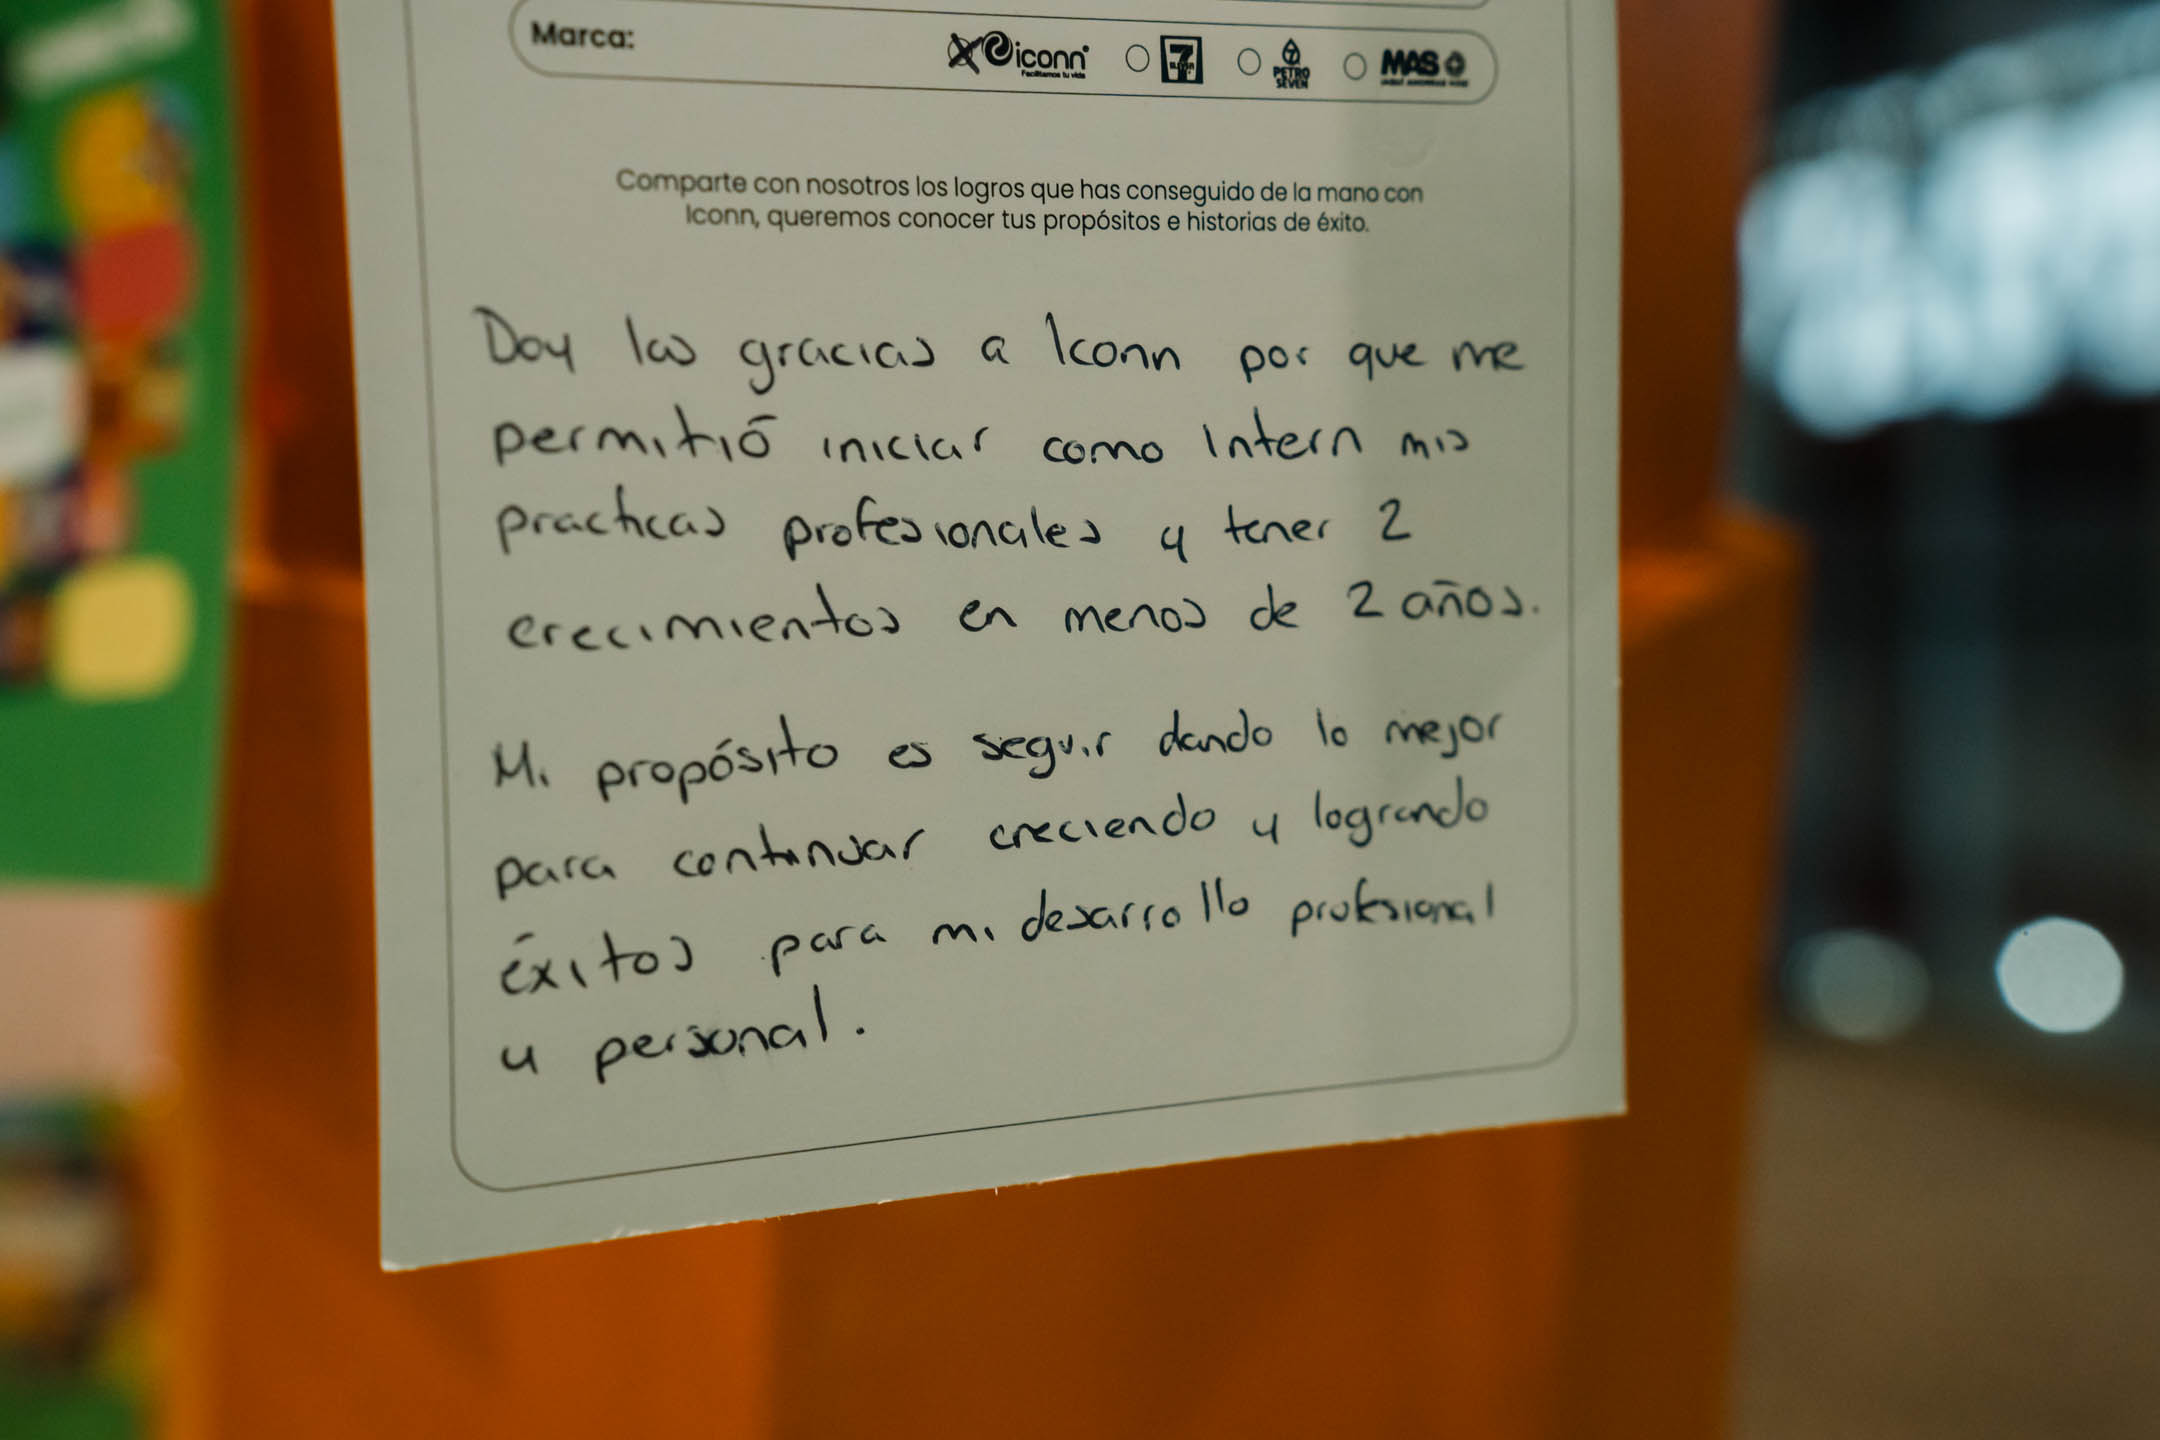 Marca: iconn Facilitamos tu vida 7 ELEVEN PETRO SEVEN MAS
Comparte con nosotros los logros que has conseguido de la mano con
Iconn, queremos conocer tus propósitos e historias de éxito.
Doy las gracias a Iconn por que me
permitió iniciar como Intern mis
practicas profesionales y tener 2
crecimientos en menos de 2 años.
Mi propósito es seguir dando lo mejor
para continuar creciendo y logrando
éxitos para mi desarrollo profesional
y personal.